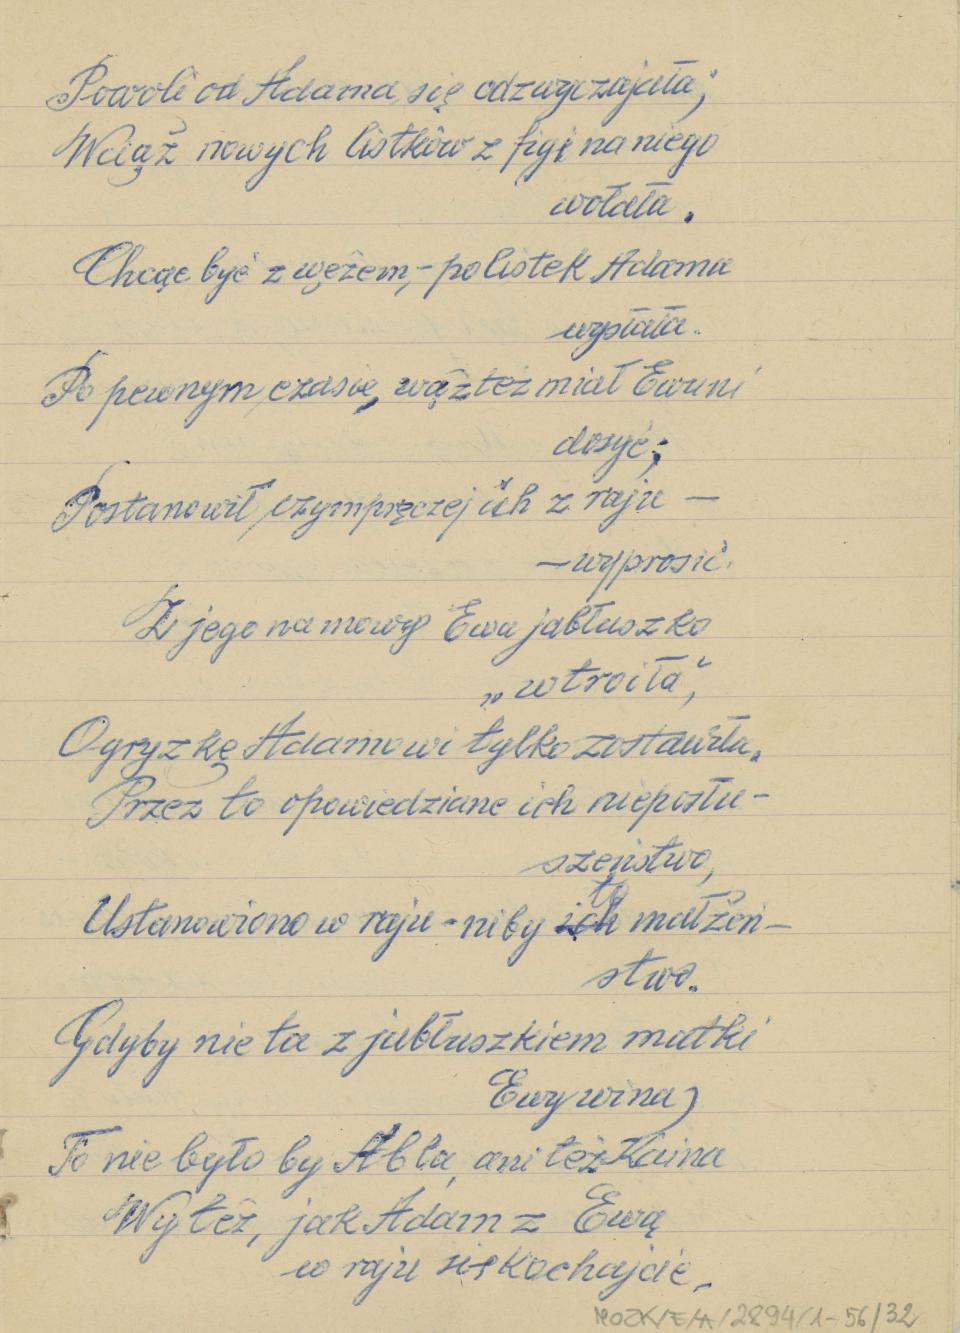 Powoli od Adama się odzwyczajała;
Wciąż nowych listków z figi na niego
wołała.
Chcąc być z wężem, – po listek Adama
wysłała.
Po pewnym czasie, wąż też miał Ewuni
dosyć;
Postanowił czympręczej ich z raju —
— wyprosić.
Z jego namowy Ewa jabłuszko
„wtroiła",
Ogryzkę Adamowi tylko zostawiła.
Przez to opowiedziane ich nieposłu-
szeństwo,
Ustanowiono w raju - niby to małżeń-
stwo.
Gdyby nie ta z jabłuszkiem matki
Ewy wina,
To nie było by Abla, ani też Kaina
Wy też, jak Adam z Ewą
w raju się kochajcie.
MOZK/E/A/2894/1-56/32